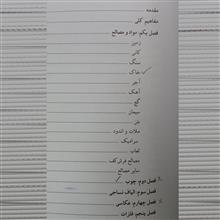 مقدمه
مفاهیم کلی
فصل یکم، مواد و مصالح
زمین
کانی
سنگ
خاک
آجر
آهک
گچ
سیمان
بتن
ملات و اندود
سرامیک
لعاب
مصالح فرش‌کف
سایر مصالح
فصل دوم، چوب
فصل سوم، الیاف نساجی
فصل چهارم، عکاسی
فصل پنجم، فلزات